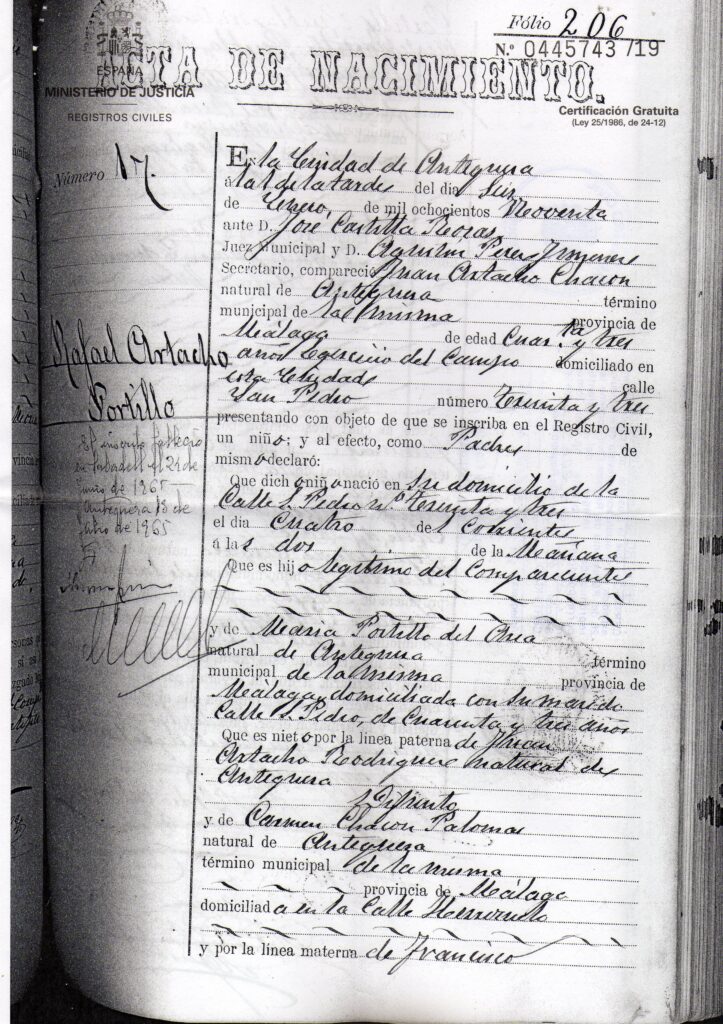 Fólio 206
N.º 0445743/19
ACTA DE NACIMIENTO.
ESPAÑA
MINISTERIO DE JUSTICIA
REGISTROS CIVILES
Certificación Gratuita
(Ley 25/1986, de 24-12)
Número 17.
Rafael Artacho
Portillo
El inscrito falleció
en Sabadell el 24 de
junio de 1965
Antequera 13 de
Julio de 1965
En la Ciudad de Antequera
á la 1 de la tarde del dia Seis
de Enero, de mil ochocientos Noventa
ante D. José Castilla Rosas
Juez Municipal y D. Agustin Perez Jimenes
Secretario, compareció Juan Artacho Chacon
natural de Antequera término
municipal de la misma provincia de
Málaga de edad Cuarta y tres
años Egercicio del Campo domiciliado en
esta Ciudad calle
San Pedro número Treinta y tres
presentando con objeto de que se inscriba en el Registro Civil,
un niño; y al efecto, como Padre de
mismo declaró:
Que dicho niño nació en Su domicilio de la
Calle S. Pedro nº Treinta y tres
el dia Cuatro del Corriente
á las dos de la Mañana
Que es hijo legitimo del Compareciente
y de Maria Portillo del
natural de Antequera término
municipal de la misma provincia de
Málaga y domiciliada con su marido
Calle S. Pedro, de Cuarenta y tres años
Que es nieto por la línea paterna de Juan
Artacho Rodriguez natural de
Antequera
Difunto
y de Carmen Chacon Palomas
natural de Antequera
término municipal de la misma
provincia de Málaga
domiciliada en la Calle Herrezuelo
y por la línea materna de Francisco